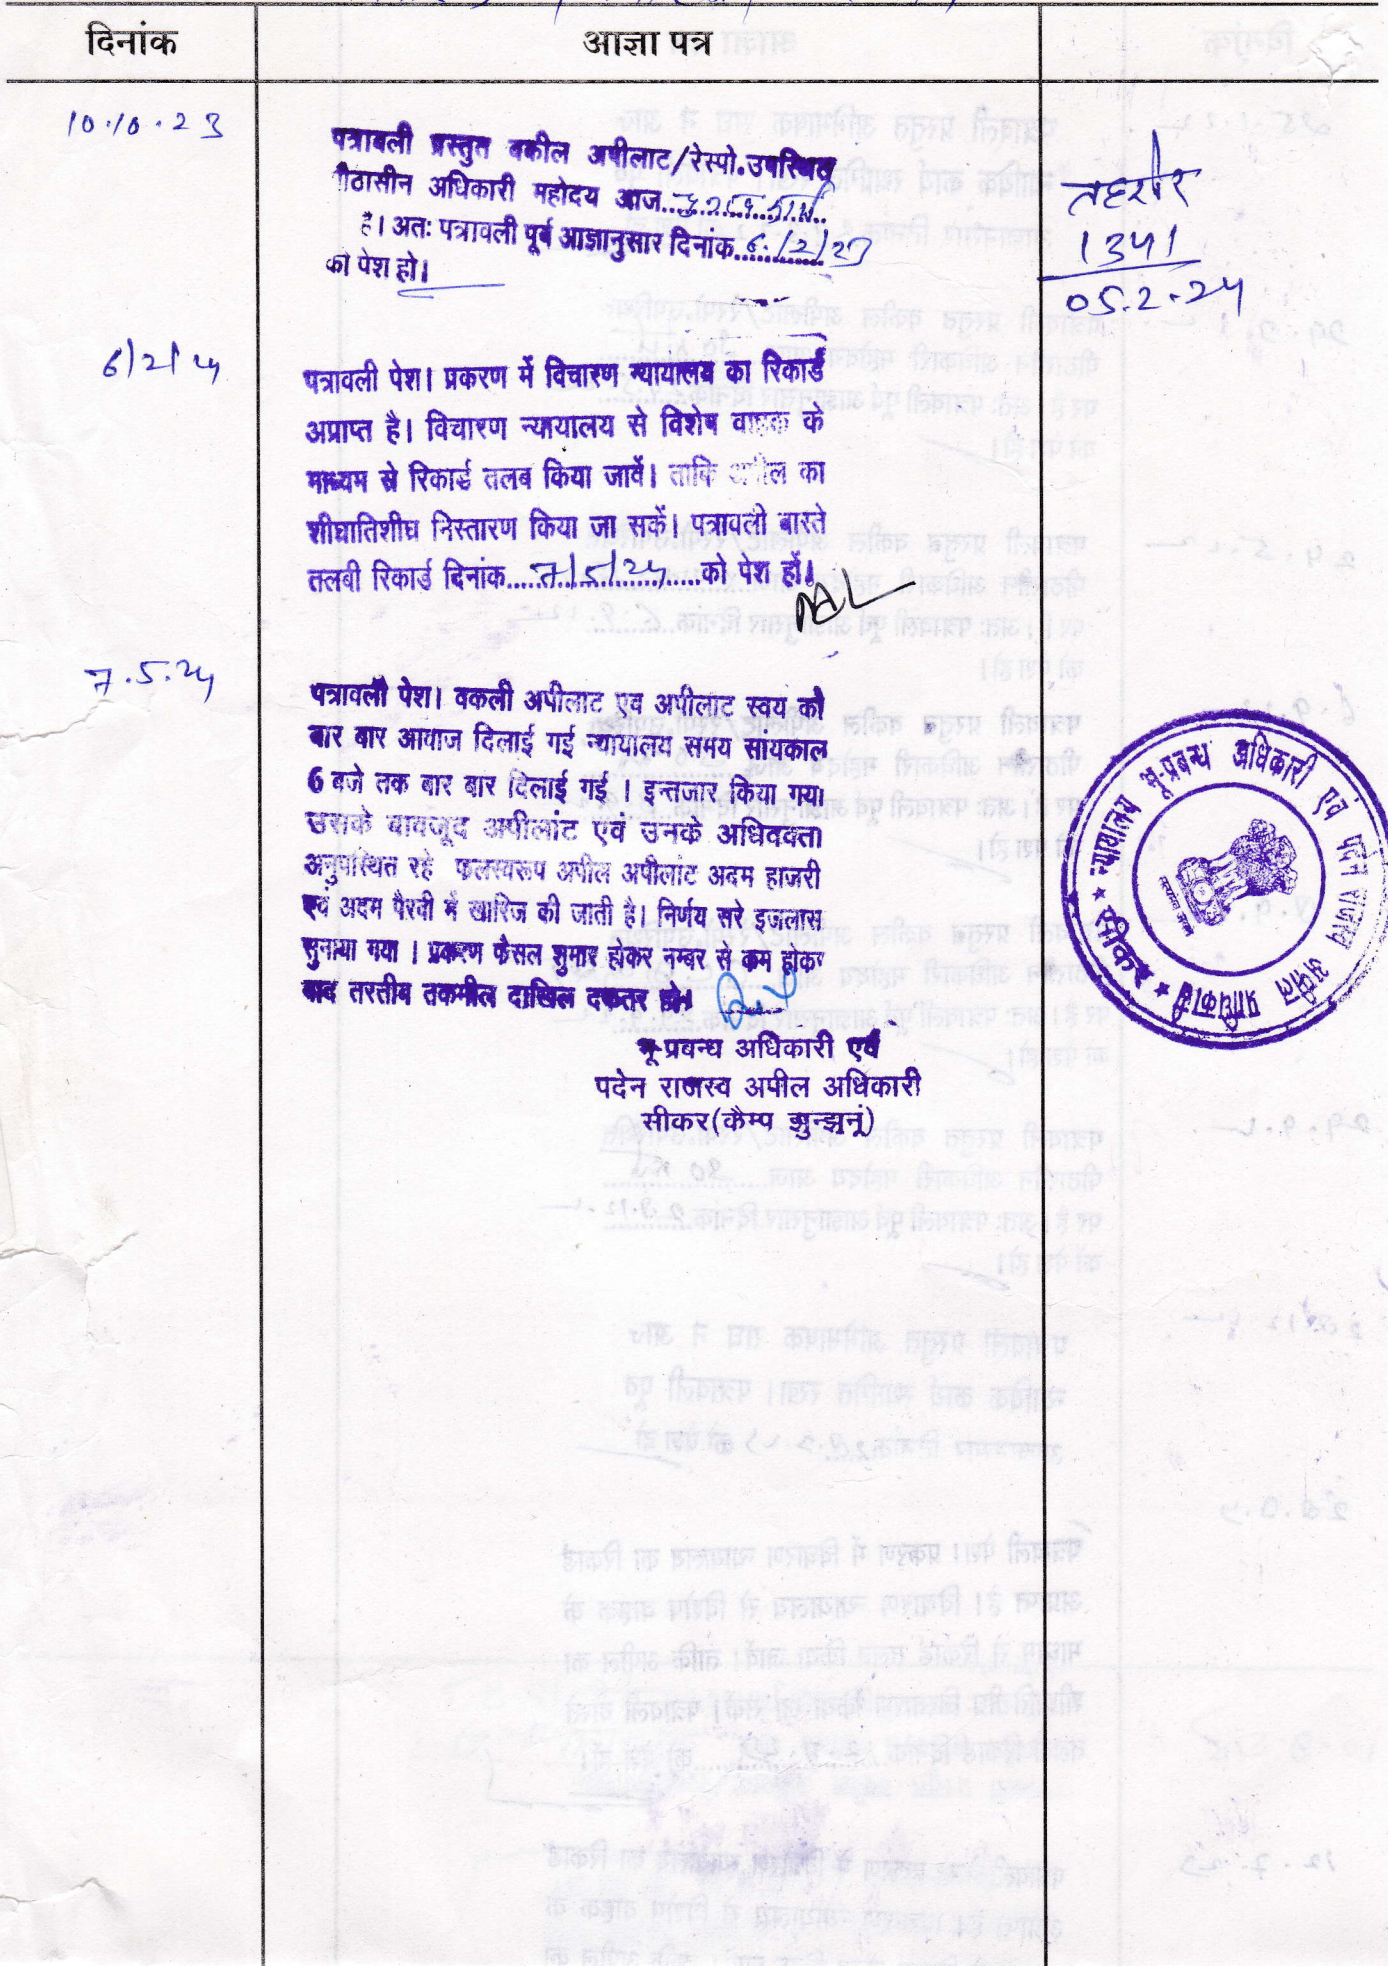 दिनांक
आज्ञा पत्र
10.10.23
पत्रावली प्रस्तुत वकील अपीलाट/रेस्पो.उपस्थित
पीठासीन अधिकारी महोदय आज..................
है। अतः पत्रावली पूर्व आज्ञानुसार दिनांक..6/2/23
को पेश हो।
तहरीर
1341
05.2.24
6/2/24
पत्रावली पेश। प्रकरण में विचारण न्यायालय का रिकार्ड
अप्राप्त है। विचारण न्यायालय से विशेष वाहक के
माध्यम से रिकार्ड तलब किया जावें। ताकि अपील का
शीघ्रातिशीघ्र निस्तारण किया जा सकें। पत्रावली वास्ते
तलबी रिकार्ड दिनांक....7/5/24....को पेश हों।
7.5.24
पत्रावली पेश। वकली अपीलाट एव अपीलाट स्वय को
बार बार आवाज दिलाई गई न्यायालय समय सांयकाल
6 बजे तक बार बार दिलाई गई । इन्तजार किया गया
उसके बावजूद अपीलांट एवं उनके अधिवक्ता
अनुपस्थित रहे फलस्वरूप अपील अपीलांट अदम हाजरी
एवं अदम पैरवी में खारिज की जाती है। निर्णय सरे इजलास
सुनाया गया । प्रकरण फैसल शुमार होकर नम्बर से कम होकर
बाद तरतीब तकमील दाखिल दफ्तर हो।
भू-प्रबन्ध अधिकारी एवं
पदेन राजस्व अपील अधिकारी
सीकर(कैम्प झुन्झुनूं)
न्यायालय भू-प्रबन्ध अधिकारी एवं पदेन राजस्व अपील प्राधिकारी
★ सीकर ★
सत्यमेव जयते